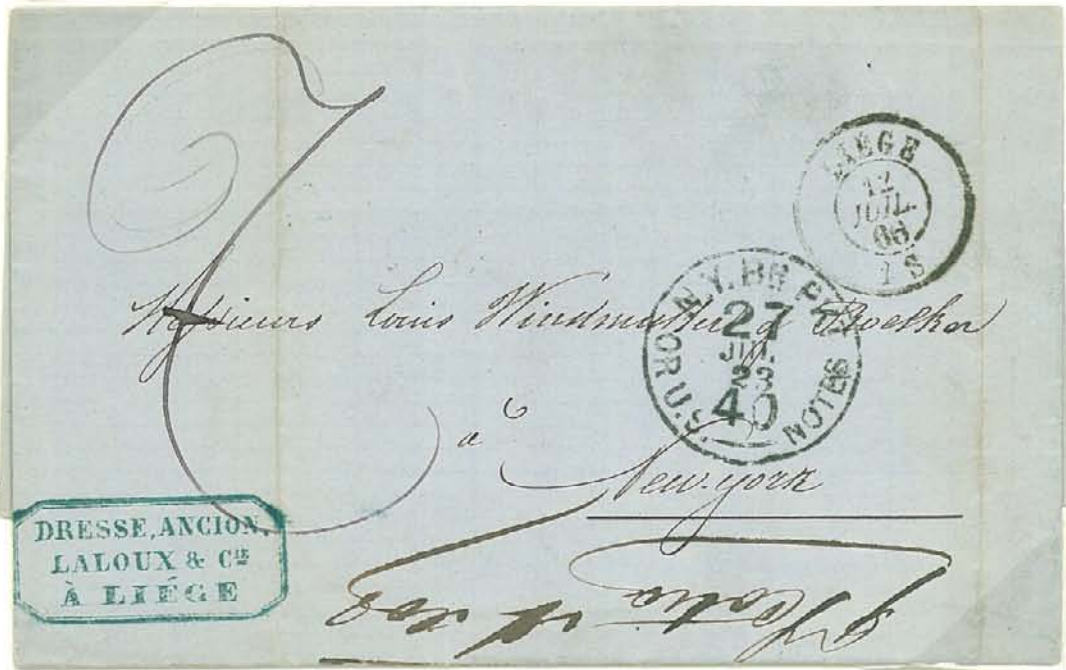 LIÉGE
12
JUIL.
66
1 S
N.Y. BR PKT
27
JUL
23
40
OR U.S. NOTES
Messieurs Louis Windmuller & Roelker
à
New-york
DRESSE, ANCION,
LALOUX & Cie
À LIÉGE